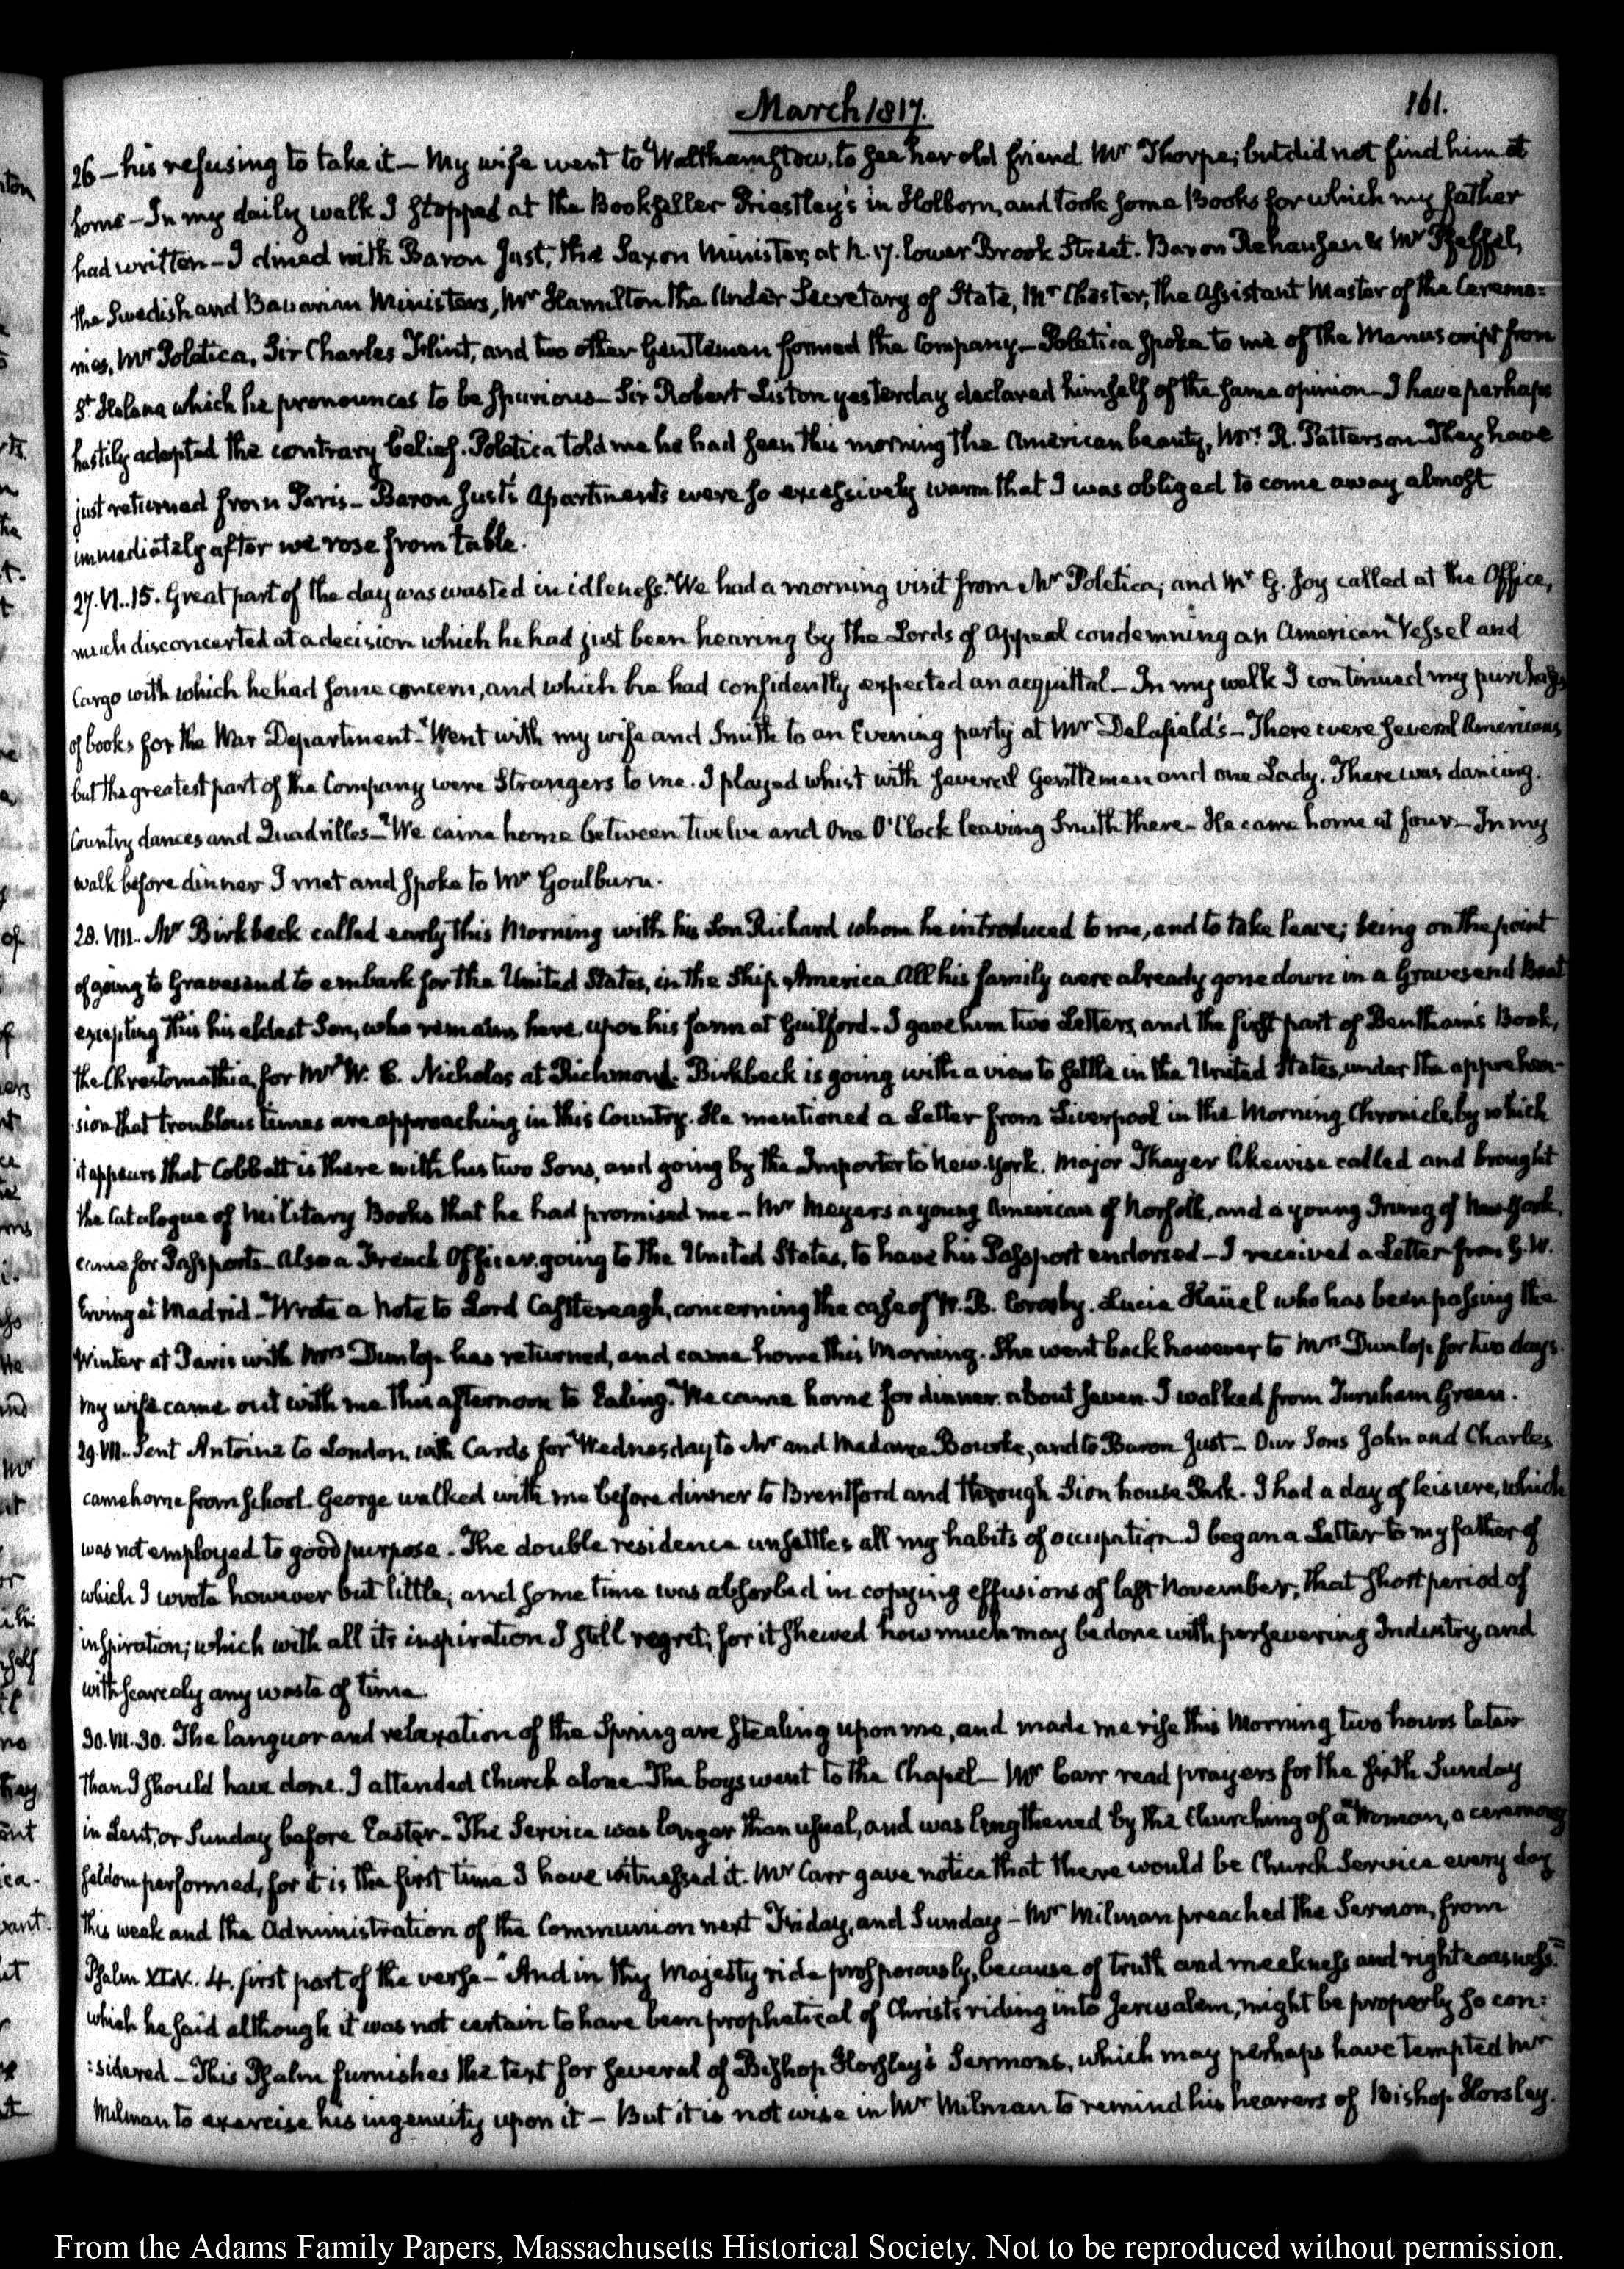 March 1817.
161.
26 – his refusing to take it – My wife went to Walthamstow, to see her old friend Mr Thorpe; but did not find him at
home – In my daily walk I stopped at the Bookseller Priestley's in Holborn, and took some Books for which my father
had written – I dined with Baron Just, the Saxon Minister, at N. 17. lower Brook Street. Baron Rehausen & Mr Pfeffel,
the Swedish and Bavarian Ministers, Mr Hamilton the Under Secretary of State, Mr Chester, the Assistant Master of the Ceremo=
nies, Mr Poletica, Sir Charles Flint, and two other Gentlemen formed the Company – Poletica spoke to me of the Manuscript from
St Helena which he pronounces to be spurious – Sir Robert Liston yesterday declared himself of the same opinion – I have perhaps
hastily adopted the contrary belief. Poletica told me he had seen this morning the American beauty, Mrs R. Patterson – They have
just returned from Paris – Baron Just's Apartments were so excessively warm that I was obliged to come away almost
immediately after we rose from table.
27. VI..15. Great part of the day was wasted in idleness. We had a morning visit from Mr Poletica; and Mr G. Joy called at the Office,
much disconcerted at a decision which he had just been hearing by the Lords of Appeal condemning an American Vessel and
Cargo with which he had some concern, and which he had confidently expected an acquittal – In my walk I continued my purchases
of books for the War Department – Went with my wife and Smith to an Evening party at Mr Delafield's – There were several Americans
but the greatest part of the Company were Strangers to me. I played whist with several Gentlemen and one Lady. There was dancing.
Country dances and Quadrilles – We came home between twelve and One O'Clock leaving Smith there – He came home at four – In my
walk before dinner I met and spoke to Mr Goulburn.
28. VIII.. Mr Birkbeck called early this Morning with his Son Richard whom he introduced to me, and to take leave; being on the point
of going to Gravesend to embark for the United States, in the Ship America All his family were already gone down in a Gravesend Boat
excepting this his eldest Son, who remains here, upon his farm at Guilford – I gave him two Letters, and the first part of Bentham's Book,
the Chrestomathia, for Mr W. C. Nicholas at Richmond. Birkbeck is going with a view to settle in the United States, under the apprehen-
sion that troublous times are approaching in this Country. He mentioned a Letter from Liverpool in the Morning Chronicle, by which
it appears that Cobbett is there with his two Sons, and going by the Importer to New-York. Major Thayer likewise called and brought
the Catalogue of Military Books that he had promised me – Mr Meyers a young American of Norfolk, and a young Irving of New-York,
came for Passports – Also a French Officer going to the United States, to have his Passport endorsed – I received a Letter from G. W.
Erving at Madrid – Wrote a Note to Lord Castlereagh, concerning the case of W. B. Corosby. Lucia Haüel who has been passing the
Winter at Paris with Mrs Dunlop has returned, and came home this Morning. She went back however to Mrs Dunlop for two days.
My wife came out with me this afternoon to Ealing. We came home for dinner about seven. I walked from Turnham Green.
29. VII.. Sent Antoine to London, with Cards for Wednesday to Mr and Madame Bourke, and to Baron Just – Our Sons John and Charles
came home from School. George walked with me before dinner to Brentford and through Sion house Park. I had a day of leisure, which
was not employed to good purpose. The double residence unsettles all my habits of occupation I began a Letter to my father of
which I wrote however but little; and some time was absorbed in copying effusions of last November; that short period of
inspiration; which with all its inspiration I still regret; for it shewed how much may be done with persevering Industry, and
with scarcely any waste of time.
30. VII. 30. The languor and relaxation of the Spring are stealing upon me, and made me rise this Morning two hours later
than I should have done. I attended Church alone. The boys went to the Chapel – Mr Carr read prayers for the sixth Sunday
in Lent, or Sunday before Easter – The Service was longer than usual, and was lengthened by the Churching of a Woman, a ceremony
seldom performed, for it is the first time I have witnessed it. Mr Carr gave notice that there would be Church Service every day
this week and the Administration of the Communion next Friday, and Sunday – Mr Milman preached the Sermon, from
Psalm XLV. 4. first part of the verse – "And in thy Majesty ride prosperously, because of truth and meekness and righteousness."
which he said although it was not certain to have been prophetical of Christ's riding into Jerusalem, might be properly so con:
:sidered – This Psalm furnishes the text for several of Bishop Horsley's Sermons, which may perhaps have tempted Mr
Milman to exercise his ingenuity upon it – But it is not wise in Mr Milman to remind his hearers of Bishop Horsley.
From the Adams Family Papers, Massachusetts Historical Society. Not to be reproduced without permission.